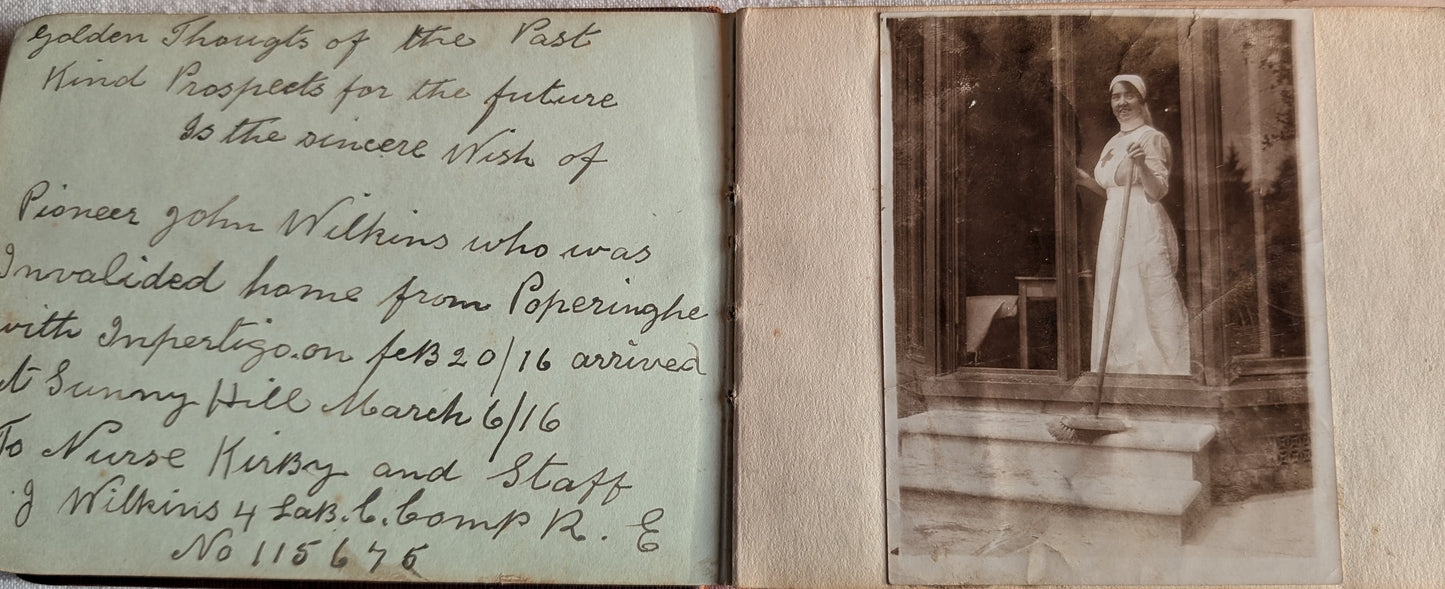 Golden Thougts of the Past
Kind Prospects for the future
Is the sincere Wish of
Pioneer John Wilkins who was
Invalided home from Poperinghe
with Inpertigo. on feB 20/16 arrived
at Sunny Hill March 6/16
To Nurse KirBy and Staff
J Wilkins 4 LaB. C. Comp R. E
No 115675